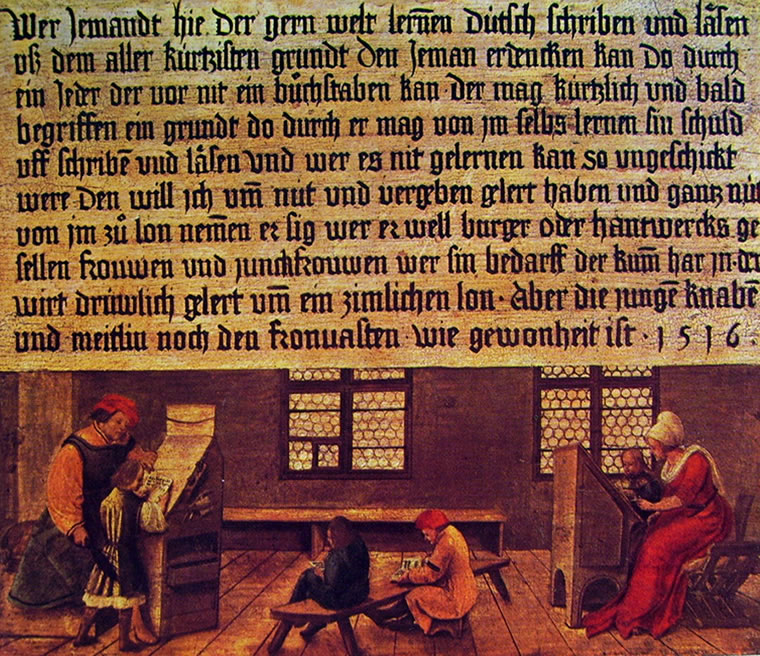 Wer Jemandt hie der gern welt lernen̄ Dütsch schriben und läsen
uß dem aller kürtzisten grundt den Jeman erdencken kan Do durch
ein Jeder der vor nit ein bůchstaben kan · der mag kürtzlich und bald
begriffen ein grundt do durch er mag von jm selbs lernen sin schuld
uff schribē und läsen und wer es nit gelernen kan so ungeschickt
were Den will jch um̄ nüt und vergeben gelert haben und gantz nüt
von jm zů lon nem̄en er sig wer er well burger oder hantwercks ge
sellen frouwen und junckfrouwen wer sin bedarff der kum̄ har jn der
wirt drüwlich gelert um̄ ein zimlichen lon · Aber die jungē knabē
und meitlin noch den fronuasten · wie gewonheit ist · 1 5 1 6 ·